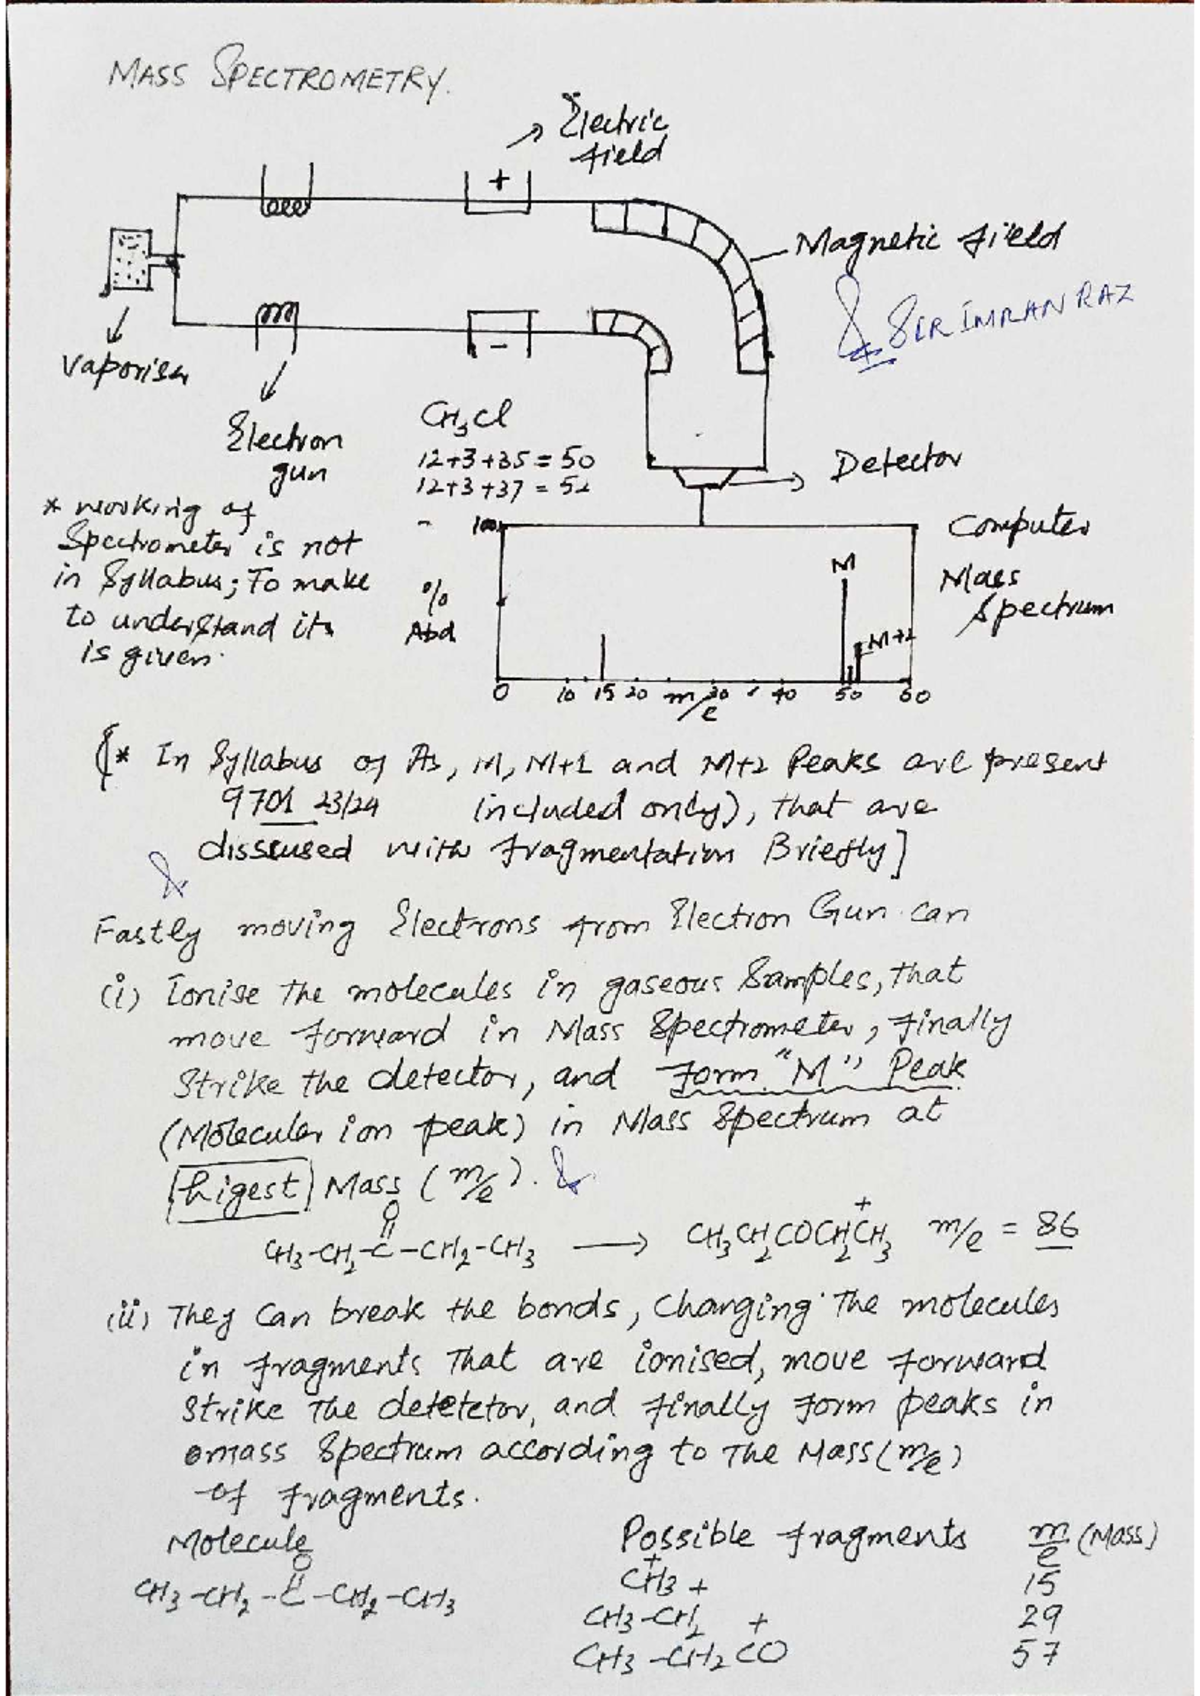 MASS SPECTROMETRY.
Electric
field
+
Magnetic field
SIR IMRAN RAZ
Vaporiser
-
Electron
gun
CH3Cl
12+3+35 = 50
12+3+37 = 52
Detector
* working of
Spectrometer is not
in Syllabus; To make
to understand its
is given.
-
100
Computer
%
Abd
M
M+2
Mass
Spectrum
0 10 15 20 m/e 30 40 50 60
[* In Syllabus of As, M, M+1 and M+2 Peaks are present
9701 23/24 included only), that are
disscused with fragmentation Briefly]
Fastly moving Electrons from Electron Gun can
(i) Ionise The molecules in gaseous Samples, that
move forward in Mass Spectrometer, finally
Strike the detector, and form "M" Peak
(Moleculer ion peak) in Mass Spectrum at
higest Mass (m/e).
O
CH3-CH2-C-CH2-CH3 → CH3CH2COCH2CH3 + m/e = 86
(ii) They Can break the bonds, Changing The molecules
in fragments That are ionised, move forward
Strike The detetctor, and finally form peaks in
mass Spectrum according to The Mass (m/e)
of fragments.
Molecule Possible fragments m/e (Mass)
O
CH3-CH2-C-CH2-CH3 CH3+ 15
CH3-CH2+ 29
CH3-CH2CO+ 57